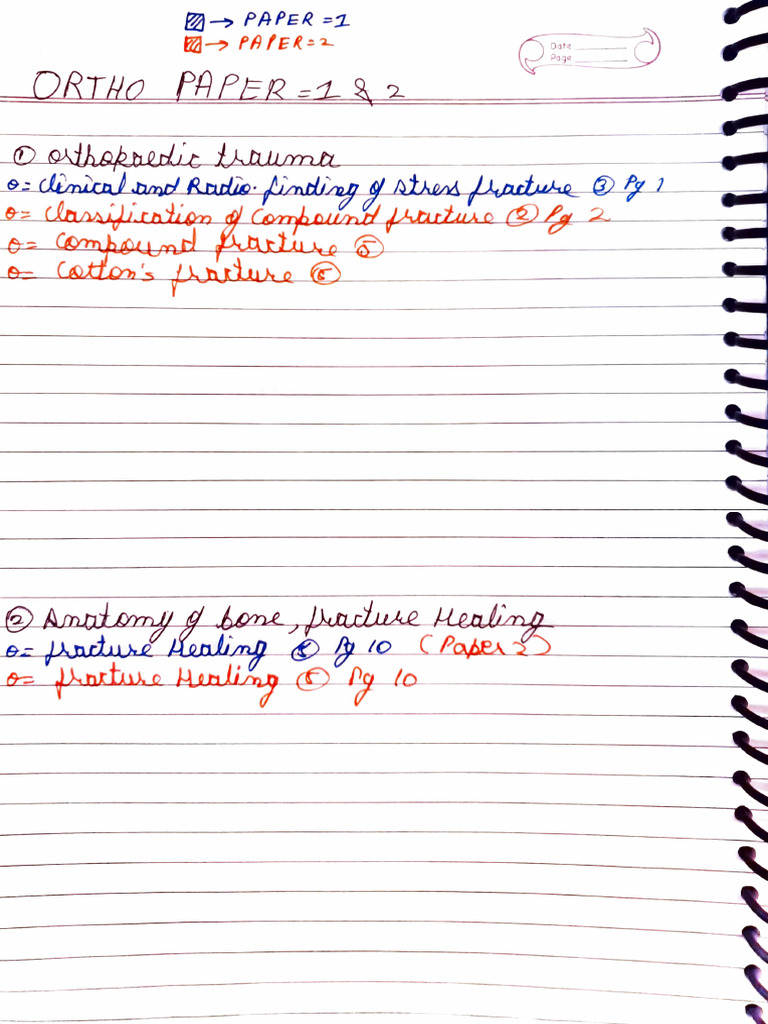 → PAPER = 1
→ PAPER = 2
Date
Page
ORTHO PAPER = 1 & 2
① Orthopaedic trauma
θ= Clinical and Radio. finding of stress fracture ③ Pg 1
θ= Classification of Compound fracture ② Pg 2
θ= Compound fracture ⑤
θ= Cotton's fracture
② Anatomy of bone, fracture Healing
θ= fracture Healing Pg 10 (Paper 2)
θ= fracture Healing Pg 10